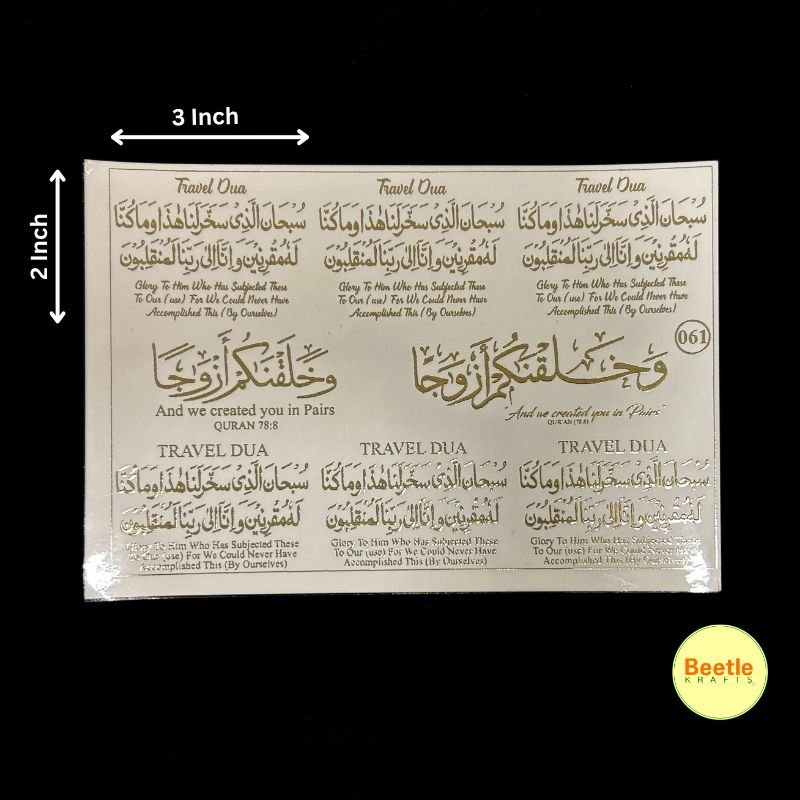 3 Inch
2 Inch
Travel Dua
سُبْحَانَ الَّذِىْ سَخَّرَلَنَا هٰذَا وَمَا كُنَّا
لَهُ مُقْرِنِيْنَ وَ اِنَّا اِلٰى رَبِّنَا لَمُنْقَلِبُوْنَ
Glory To Him Who Has Subjected These
To Our (use) For We Could Never Have
Accomplished This (By Ourselves)
Travel Dua
سُبْحَانَ الَّذِىْ سَخَّرَلَنَا هٰذَا وَمَا كُنَّا
لَهُ مُقْرِنِيْنَ وَ اِنَّا اِلٰى رَبِّنَا لَمُنْقَلِبُوْنَ
Glory To Him Who Has Subjected These
To Our (use) For We Could Never Have
Accomplished This (By Ourselves)
Travel Dua
سُبْحَانَ الَّذِىْ سَخَّرَلَنَا هٰذَا وَمَا كُنَّا
لَهُ مُقْرِنِيْنَ وَ اِنَّا اِلٰى رَبِّنَا لَمُنْقَلِبُوْنَ
Glory To Him Who Has Subjected These
To Our (use) For We Could Never Have
Accomplished This (By Ourselves)
061
وَخَلَقْنَاكُمْ أَزْوَاجًا
And we created you in Pairs
QURAN 78:8
وَخَلَقْنَاكُمْ أَزْوَاجًا
"And we created you in Pairs"
QUR'AN (78:8)
TRAVEL DUA
سُبْحَانَ الَّذِىْ سَخَّرَلَنَا هٰذَا وَمَا كُنَّا
لَهُ مُقْرِنِيْنَ وَ اِنَّا اِلٰى رَبِّنَا لَمُنْقَلِبُوْنَ
Glory To Him Who Has Subjected These
To Our (use) For We Could Never Have
Accomplished This (By Ourselves)
TRAVEL DUA
سُبْحَانَ الَّذِىْ سَخَّرَلَنَا هٰذَا وَمَا كُنَّا
لَهُ مُقْرِنِيْنَ وَ اِنَّا اِلٰى رَبِّنَا لَمُنْقَلِبُوْنَ
Glory To Him Who Has Subjected These
To Our (use) For We Could Never Have
Accomplished This (By Ourselves)
TRAVEL DUA
سُبْحَانَ الَّذِىْ سَخَّرَلَنَا هٰذَا وَمَا كُنَّا
لَهُ مُقْرِنِيْنَ وَ اِنَّا اِلٰى رَبِّنَا لَمُنْقَلِبُوْنَ
Glory To Him Who Has Subjected These
To Our (use) For We Could Never Have
Accomplished This (By Ourselves)
Beetle
KRAFTS